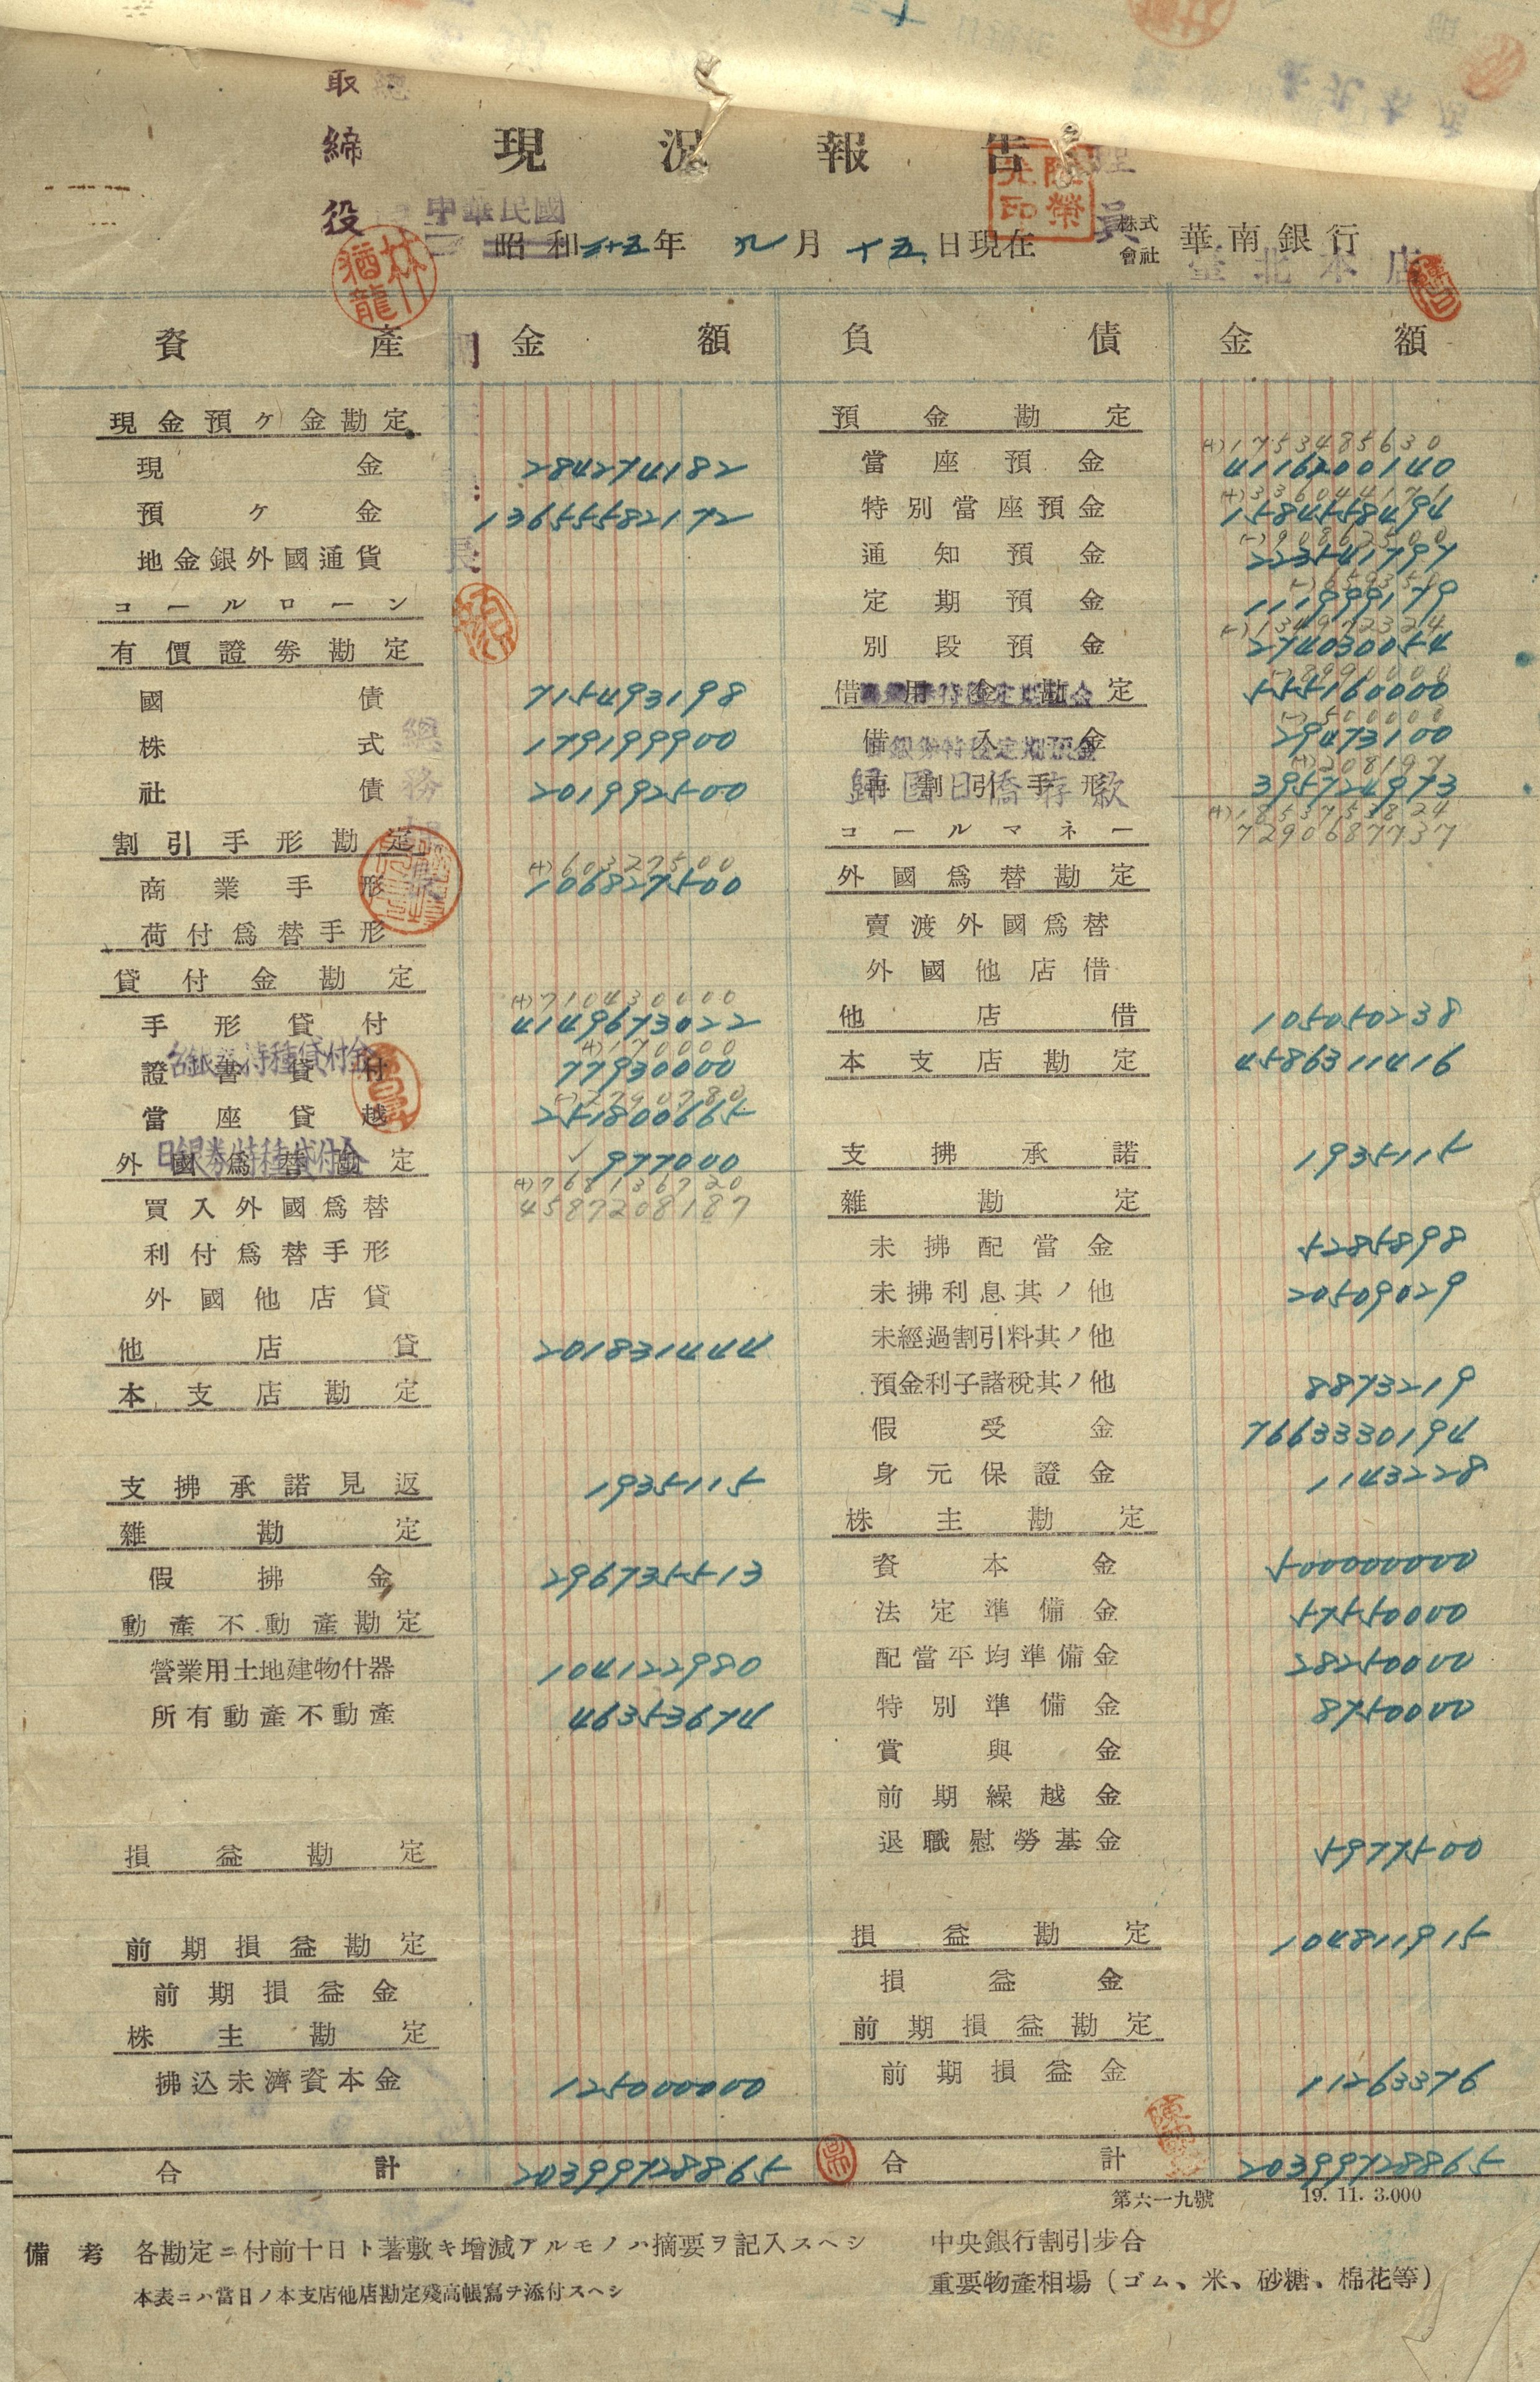 取締役
現況報告
中華民國
昭和三十五年 九月十五日現在 株式會社 華南銀行
臺北本店
資產 金額 負債 金額
現金預ケ金勘定
現金 284274182
預ケ金 13655582172
地金銀外國通貨
コールローン
有價證券勘定
國債 715493198
株式 179199900
社債 201992500
割引手形勘定
(+)60327500
商業手形 106827500
荷付爲替手形
貸付金勘定
(+)710430000
手形貸付 4149673022
(+)170000
證書貸付 77930000
台銀券特種貸付金
(-)2790780
當座貸越 251800665
日銀券特種貸付金
外國爲替勘定 977000
(+)768136720
4587208187
買入外國爲替
利付爲替手形
外國他店貸
他店貸 201831444
本支店勘定
支拂承諾見返 1935115
雜勘定
假拂金 296735513
動產不動產勘定
營業用土地建物什器 104122980
所有動產不動產 46353674
損益勘定
前期損益勘定
前期損益金
株主勘定
拂込未濟資本金 125000000
合計 20399728865
預金勘定
(+)1753485630
當座預金 4116200140
(+)336044171
特別當座預金 1584558494
(-)90862500
通知預金 223541797
(-)659350
定期預金 111999179
(-)134972324
別段預金 274030054
(-)89990000
借用金勘定 555160000
(-)500000
借入金 29473100
(+)208197
再割引手形 395724973
歸國日僑存款
(+)1853753824
7290687737
コールマネー
外國爲替勘定
賣渡外國爲替
外國他店借
他店借 105050238
本支店勘定 4586311416
支拂承諾 1935115
雜勘定
未拂配當金 5285898
未拂利息其ノ他 20509029
未經過割引料其ノ他
預金利子諸稅其ノ他 8873219
假受金 7663330194
身元保證金 1143228
株主勘定
資本金 500000000
法定準備金 57550000
配當平均準備金 28250000
特別準備金 8750000
賞與金
前期繰越金
退職慰勞基金 5977500
損益勘定 104811915
損益金
前期損益勘定
前期損益金 11263376
合計 20399728865
第六一九號 19. 11. 3.000
備考 各勘定ニ付前十日ト著敷キ增減アルモノハ摘要ヲ記入スヘシ
本表ニハ當日ノ本支店他店勘定殘高帳寫ヲ添付スヘシ
中央銀行割引步合
重要物產相場（ゴム、米、砂糖、棉花等）